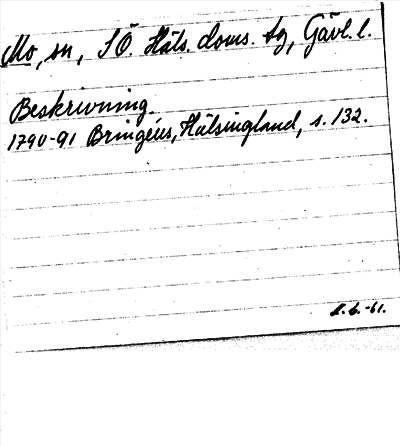 Mo, sn, SÖ. Häls. doms. tg, Gävl. l.
Beskrivning.
1790-91 Bringéus, Hälsingland, s. 132.
-61.